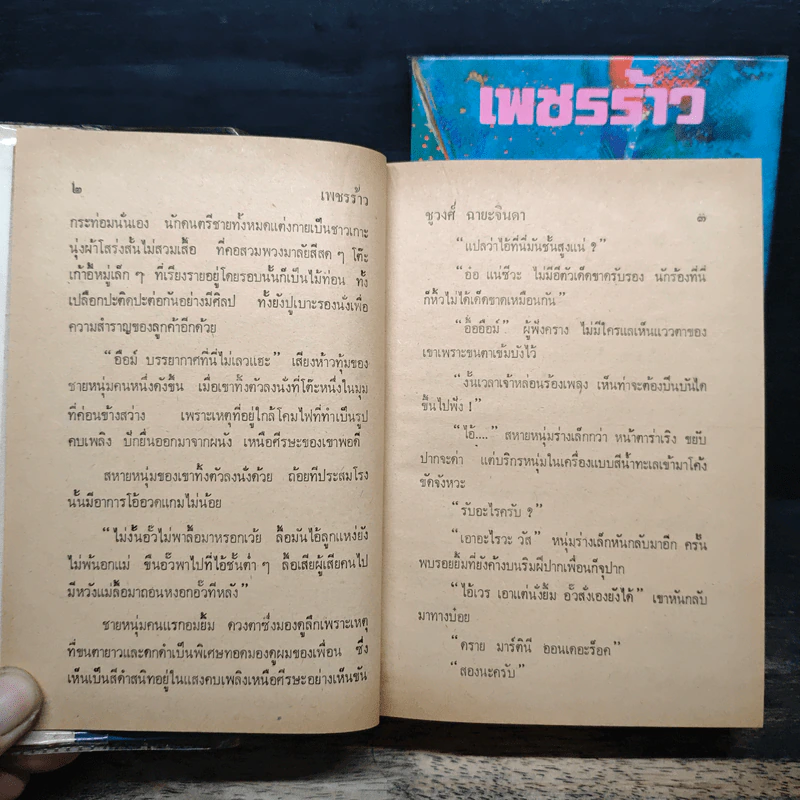 เพชรร้าว
๒ เพชรร้าว
กระท่อมนั่นเอง นักดนตรีชายทั้งหมดแต่งกายเป็นชาวเกาะ
นุ่งผ้าโสร่งสั้นไม่สวมเสื้อ ที่คอสวมพวงมาลัยสีสด ๆ โต๊ะ
เก้าอี้หมู่เล็ก ๆ ที่เรียงรายอยู่โดยรอบนั้นก็เป็นไม้ท่อน ทั้ง
เปลือกปะติดปะต่อกันอย่างมีศิลป ทั้งยังปูเบาะรองนั่งเพื่อ
ความสำราญของลูกค้าอีกด้วย
“อือม์ บรรยากาศที่นี่ไม่เลวแฮะ” เสียงห้าวทุ้มของ
ชายหนุ่มคนหนึ่งดังขึ้น เมื่อเขาทิ้งตัวลงนั่งที่โต๊ะหนึ่งในมุม
ที่ค่อนข้างสว่าง เพราะเหตุที่อยู่ใกล้โคมไฟที่ทำเป็นรูป
คบเพลิง ปักยื่นออกมาจากผนัง เหนือศีรษะของเขาพอดี
สหายหนุ่มของเขาทิ้งตัวลงนั่งด้วย ถ้อยทีประสมโรง
นั้นมีอาการโอ้อวดแกมไม่น้อย
“ไม่งั้นอั๊วไม่พาลื้อมาหรอกเว้ย ลื้อมันไอ้ลูกแหง่ยัง
ไม่พ้นอกแม่ ขืนอั๊วพาไปที่ไอ้ชั้นต่ำ ๆ ลื้อเสียผู้เสียคนไป
มีหวังแม่ลื้อมาถอนหงอกอั๊วทีหลัง”
ชายหนุ่มคนแรกอมยิ้ม ดวงตาซึ่งมองดูลึกเพราะเหตุ
ที่ขนตายาวและดกดำเป็นพิเศษทอดมองดูผมของเพื่อน ซึ่ง
เห็นเป็นสีดำสนิทอยู่ในแสงคบเพลิงเหนือศีรษะอย่างเห็นขัน
ชูวงศ์ ฉายะจินดา ๓
“แปลว่าไอ้ที่นี่มันชั้นสูงแน่ ?”
“อ้อ แน่ซีวะ ไม่มีอีตัวเด็ดขาดรับรอง นักร้องที่นี่
ก็หิ้วไม่ได้เด็ดขาดเหมือนกัน”
“อื้อฮือม์” ผู้ฟังคราง ไม่มีใครแลเห็นแววตาของ
เขาเพราะขนตาเข้มบังไว้
“งั้นเวลาเจ้าหล่อนร้องเพลง เห็นท่าจะต้องปีนบันได
ขึ้นไปฟัง !”
“ไอ้....” สหายหนุ่มร่างเล็กกว่า หน้าตาร่าเริง ขยับ
ปากจะด่า แต่บริกรหนุ่มในเครื่องแบบสีน้ำทะเลเข้ามาโค้ง
ขัดจังหวะ
“รับอะไรครับ ?”
“เอาอะไรวะ วัส” หนุ่มร่างเล็กหันกลับมาอีก ครั้น
พบรอยยิ้มที่ยังค้างบนริมฝีปากเพื่อนก็จุปาก
“ไอ้เวร เอาแต่นั่งยิ้ม อั๊วสั่งเองยังได้” เขาหันกลับ
มาทางบ๋อย
“ดราย มาร์ตินี ออนเดอะร็อค”
“สองนะครับ”